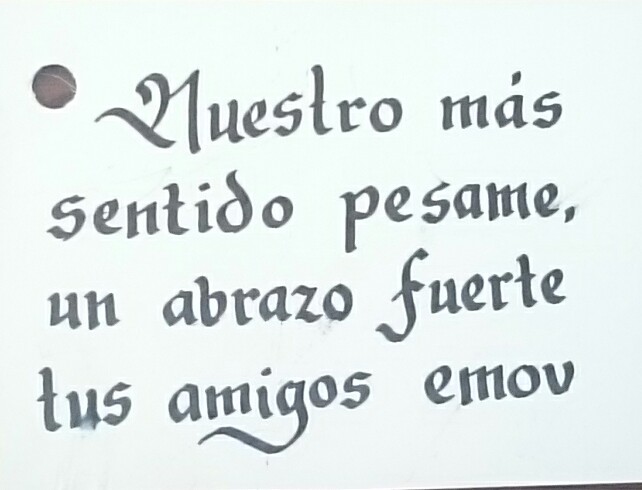 Nuestro más
sentido pesame,
un abrazo fuerte
tus amigos emov